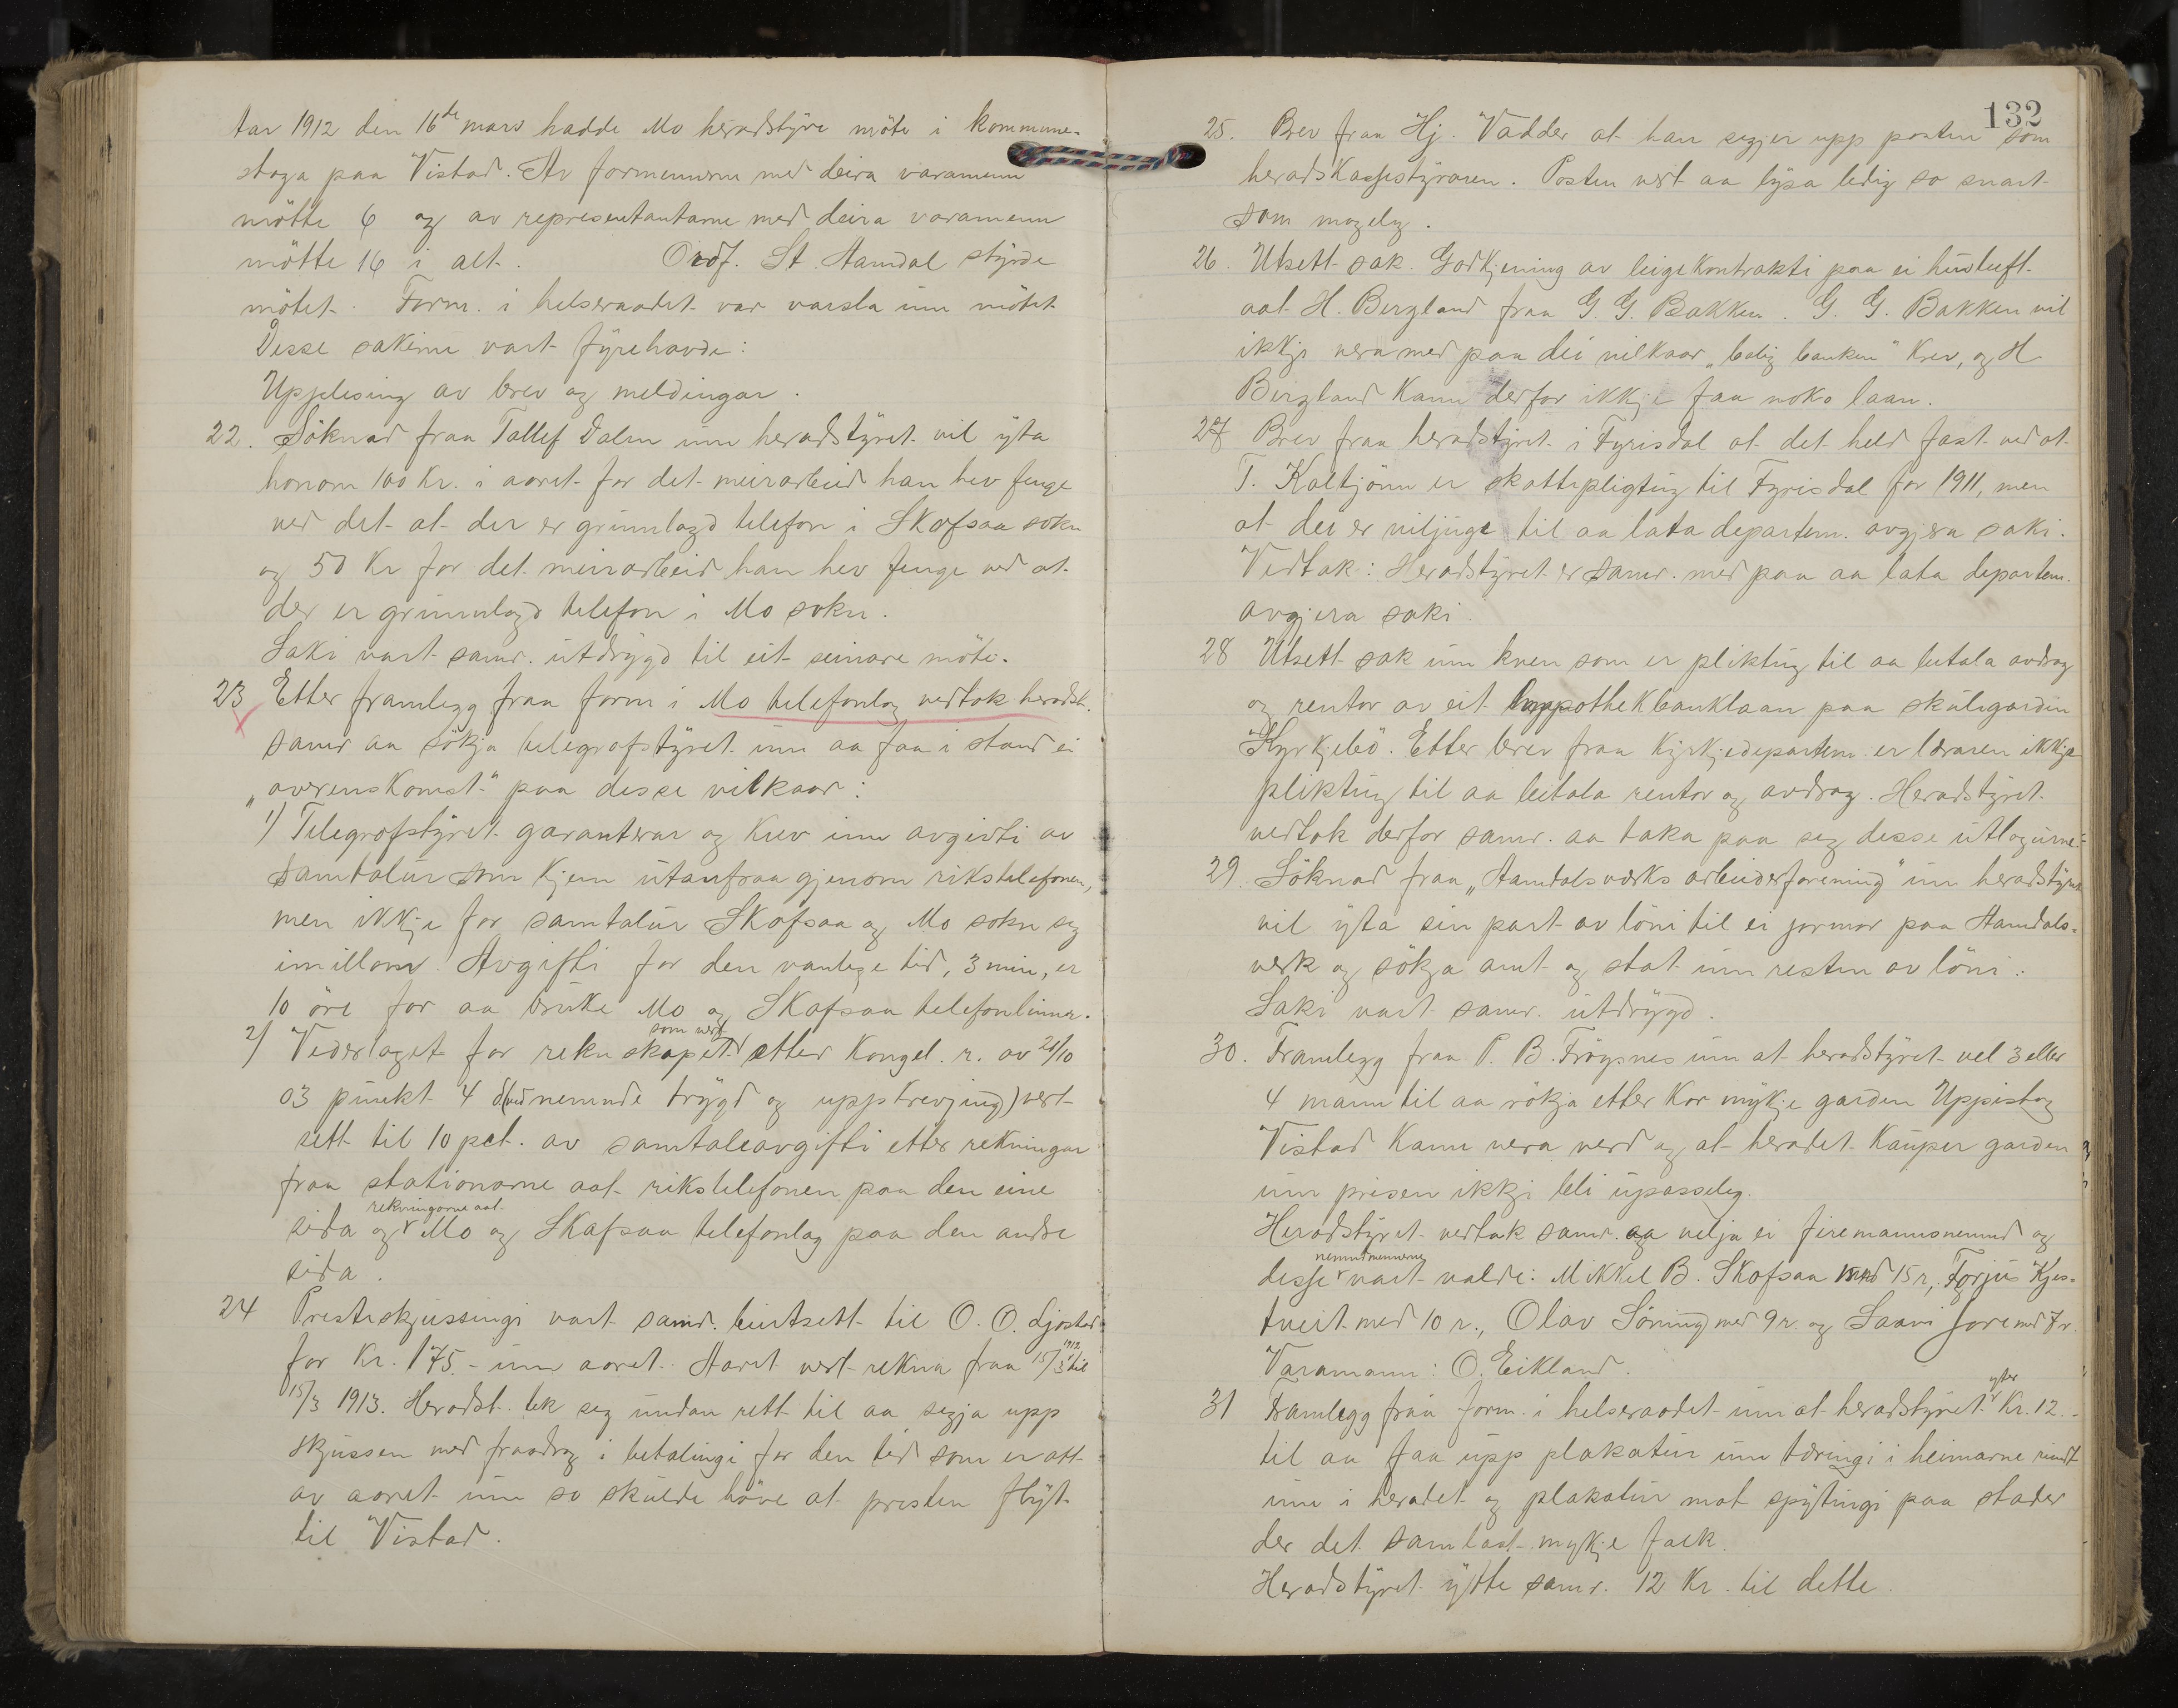 Aar 1912 den 16de mars hadde Mo heradstyre möte i kommune-
stoga paa Vistad. Av formennerne med deira varamenn
mötte 6 og av representantarne med deira varamenn
mötte 16 i alt. Ordf. St. Aamdal styrde
mötet. Form. i helseraadet var varsla um mötet
Desse sakerne vart fyrehavde:
Upplesing av brev og meldingar.
22. Söknad fraa Tallef Dalen um heradstyret vil yta
honom 100 Kr. i aaret for det meirarbeid han hev fenge
ved det at der er grunnlagd telefon i Skafsaa sokn
og 50 Kr for det meirarbeid han hev fenge ved at
der er grunnlagd telefon i Mo sokn.
Saki vart samr. utdrygd til eit seinare möte.
23 Etter framlegg fraa form i Mo telefonlag vedtok heradst.
samr aa sökja telegrafstyret um aa faa i stand ei
„overenskomst" paa desse vilkaar:
1) Telegrafstyret garanterar og krev inn avgivti av
samtalur som kjem utanfraa gjenom rikstelefonen,
men ikkje for samtalur Skafsaa og Mo sokn seg
imillom. Avgifti for den vanlege tid, 3 min, er
10 öre for aa bruke Mo og Skafsaa telefonlinur.
2) Vederlaget for reknskapet som vert etter Kongel. r. av 20/10
03 punkt 4 d(ved nemnde trygd og uppkrevjing) vert
sett til 10 pct. av samtaleavgifti etter rekningar
fraa stationarne aat rikstelefonen paa den eine
sida og rekningarne aat Mo og Skafsaa telefonlag paa den andre
sida.
24 Presteskjussingi vart samr. burtsett til O. O. Ljosted
for Kr. 175.- um aaret. Aaret vert rekna fraa 15/3 1912 til
15/3 1913. Heradst. tek seg undan rett til aa segja upp
skjussen med fraadrag i betalingi for den tid som er att
av aaret um so skulde höve at presten flyt
til Vistad.
132
25. Brev fraa Hj. Vadder at han segjer upp posten som
heradskassestyraren. Posten vert aa lysa ledig so snart
som mogeleg.
26. Utsett sak. Godkjening av leigekontrakti paa ei hustuft
aat H. Bergland fraa G. G. Bakken. G. G. Bakken vil
ikkje vera med paa dei vilkaar „bolig banken" krev, og H
Bergland kann derfor ikkje faa noko laan.
27 Brev fraa heradstyret i Fyrisdal at det held fast ved at
T. Kaltjönn er skattepligtug til Fyrisdal for 1911, men
at dei er viljuge til aa lata departem. avgjera saki.
Vedtak: Heradstyret er samr. med paa aa lata departem.
avgjera saki.
28 Utsett sak um kven som er pliktug til aa betala avdrag
og rentor av eit hypothekbanklaan paa skulegarden
Kyrkjebö. Etter brev fraa Kyrkjedepartem er læraren ikkje
pliktug til aa betala rentor og avdrag. Heradstyret
vedtok derfor samr. aa taka paa seg desse utlogurne.
29. Söknad fraa „Aamdalsværks arbeiderforening" um heradstyret
vil yta sin part av löni til ei jormor paa Aamdals-
verk og sökja amt og stat um resten av löni.
Saki vart samr. utdrygd.
30. Framlegg fraa P. B. Fröysnes um at heradstyret vel 3 eller
4 mann til aa rökja etter kor mykje garden Uppistog
Vistad kann vera verd og at heradet kauper garden
um prisen ikkje bli upasseleg.
Heradstyret vedtok samr. aa velja ei firemannsnemnd og
desse nemndmennerne vart valde: Mikkel B. Skafsaa med 15 r., Torjus Kjes-
tveit med 10 r., Olav Söning med 9 r. og Saavi Jore med 7 r.
Varamann: O. Eikland.
31 Framlegg fraa form. i helseraadet um at heradstyret yter Kr. 12.-
til aa faa upp plakatur um tæringi i heimarne rundt
um i heradet og plakatur mot spytingi paa stader
der det samlast mykje folk.
Heradstyret ytte samr. 12 Kr. til dette.